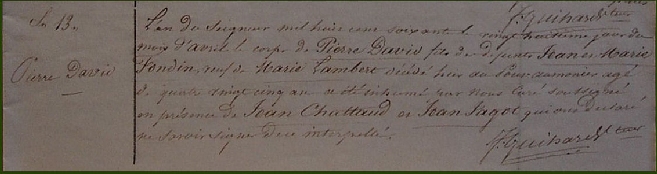 F. Guihard
So 13.
L'an du Seigneur mil huit cent soixante le vingt huitieme jour du
mois d'avril le corps de Pierre David fils de defunts Jean et Marie
Pierre David
Fondin, veuf de Marie Lambert décédé hier au agé
de quatre vingt cinq ans a été inhumé par Nous Curé soussigné
en présence de Jean Chattaud et Jean Pagot qui ont déclaré
ne savoir signer de ce interpellé.
F. Guihard